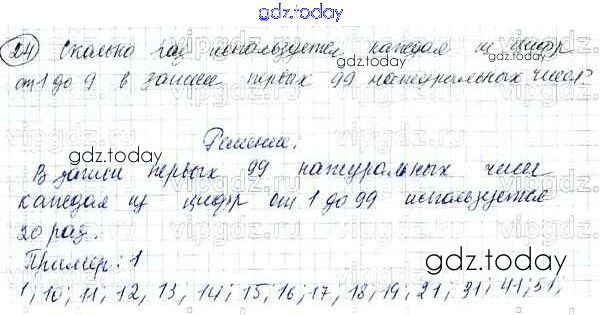 gdz.today
24 Сколько раз используется каждая из цифр
от 1 до 9 в записи первых 99 натуральных чисел?
Решение:
gdz.today
В записи первых 99 натуральных чисел
каждая из цифр от 1 до 99 используется
20 раз.
Пример: 1
gdz.today
gdz.today
1; 10; 11; 12, 13; 14; 15, 16; 17; 18; 19; 21; 31; 41; 51;